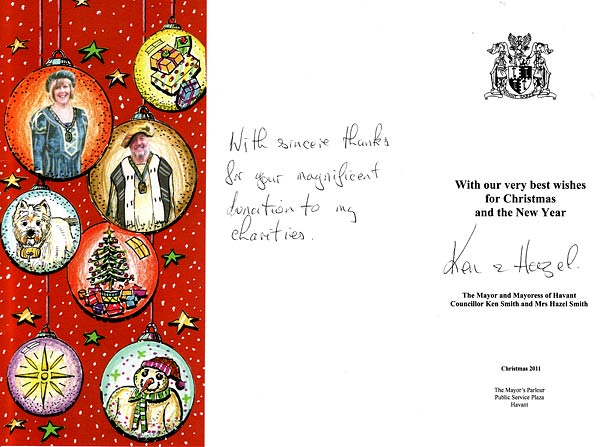 With sincere thanks
for your magnificent
donation to my
charities.
With our very best wishes
for Christmas
and the New Year
Ken & Hazel.
The Mayor and Mayoress of Havant
Councillor Ken Smith and Mrs Hazel Smith
Christmas 2011
The Mayor's Parlour
Public Service Plaza
Havant